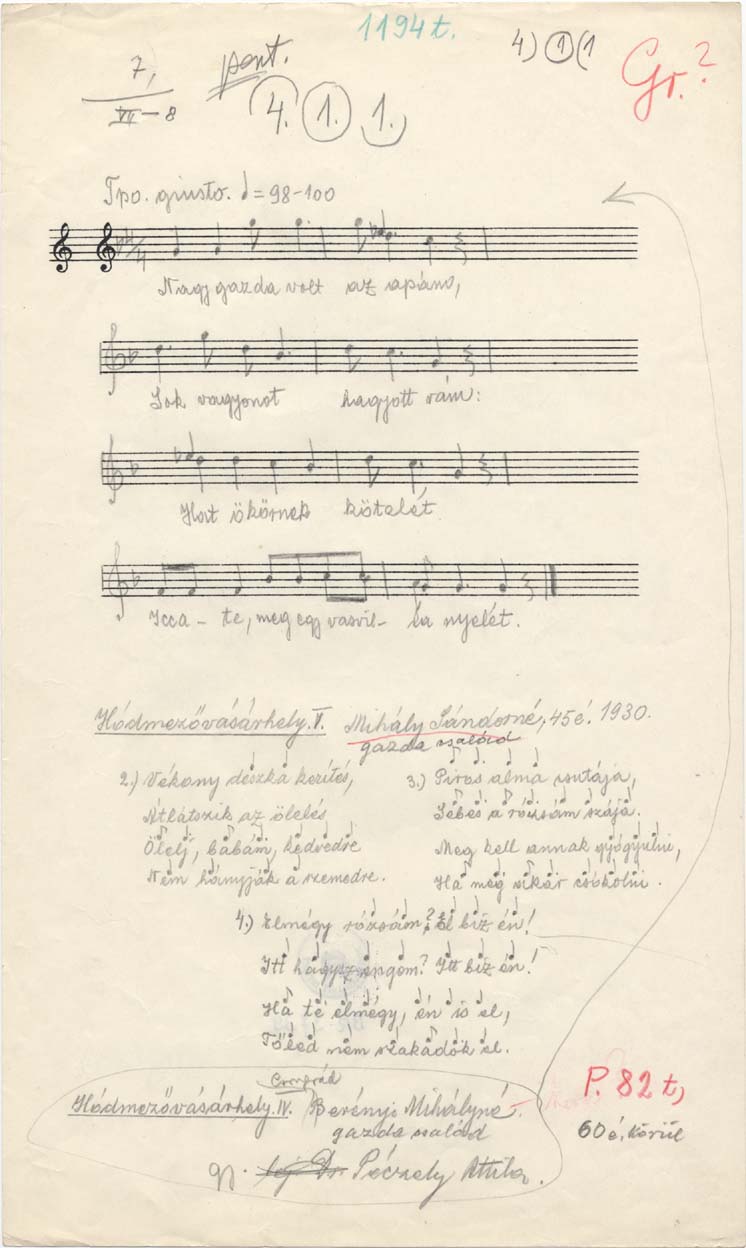 1194t.
4) 1 (1
Gr.?
7,
pent.
VII-8
4. 1. 1.
Tpo. giusto. ♩=98-100
4/4
Nagy gazda volt az apám,
Sok vagyonot hagyott rám:
Hat ökörnek kötelét
Icca - te, meg egy vasvil- la nyelét.
Hódmezővásárhely. V. Mihály Sándorné, 45é. 1930.
gazda család
2.) Vékony deszka kerítés,
Átlátszik az ölelés
Ölelj, babám, kedvedre
Nem hányják a szemedre.
3.) Piros alma csutája,
Sebes a rózsám szája.
Meg kell annak gyógyulni,
Ha még akar csókolni.
4.) Elmégy rózsám? El biz én!
Itt hagysz engom? Itt biz én!
Ha te elmégy, én is el,
Tőled nem szakadok el.
Csongrád
Hódmezővásárhely. IV. Berényi Mihályné
gazda család
P. 82 t,
60 é. körül
gy. lej. Dr. Péczely Attila.